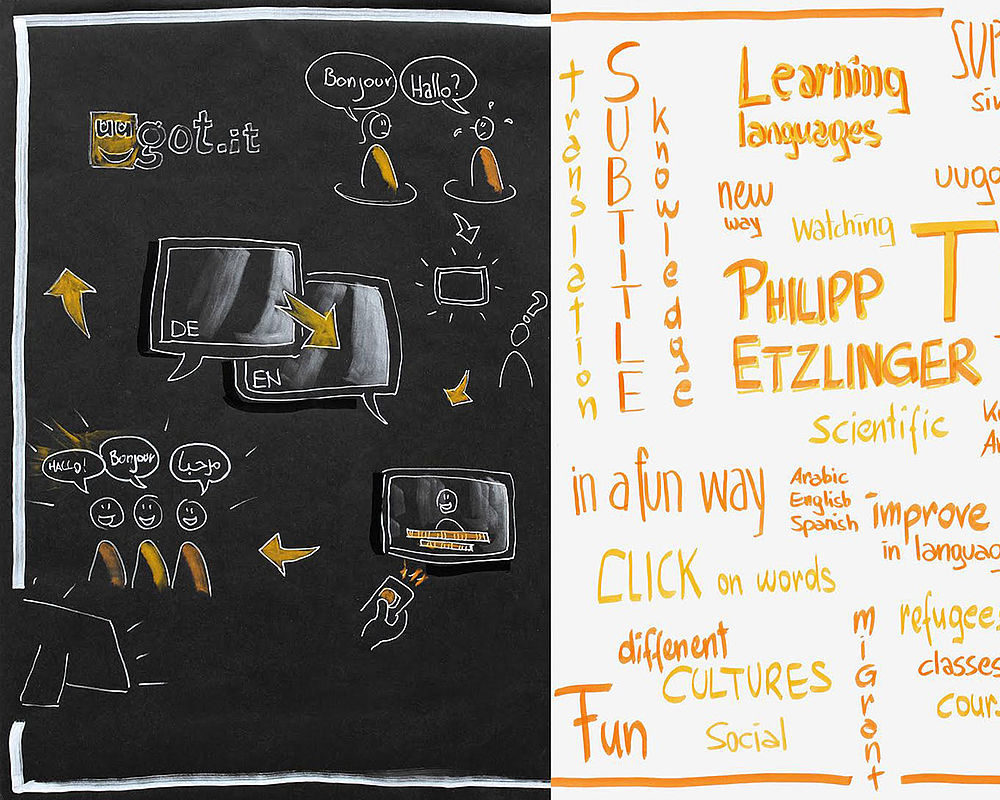 Bonjour
Hallo?
uugot.it
DE
EN
HALLO!
Bonjour
مرحبا
translation
SUBTITLE
knowledge
Learning
languages
new
way
watching
uugo
T
PHILIPP
ETZLINGER
Scientific
in a fun way
Arabic
English
Spanish
improve
in languag
CLICK on words
different
CULTURES
Fun
Social
miGrant
refugees
classes
cour